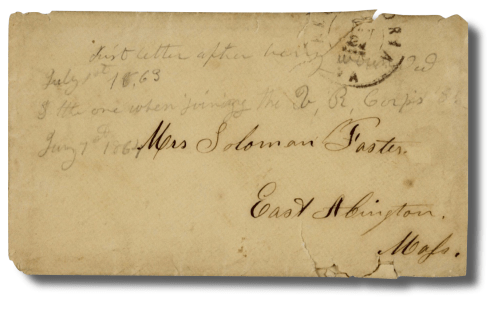 first letter after being
July 1st 1863
& the one when joining the V. R. Corps
Jany 7th 1864
Mrs Soloman Foster.
East Abington.
Mass.